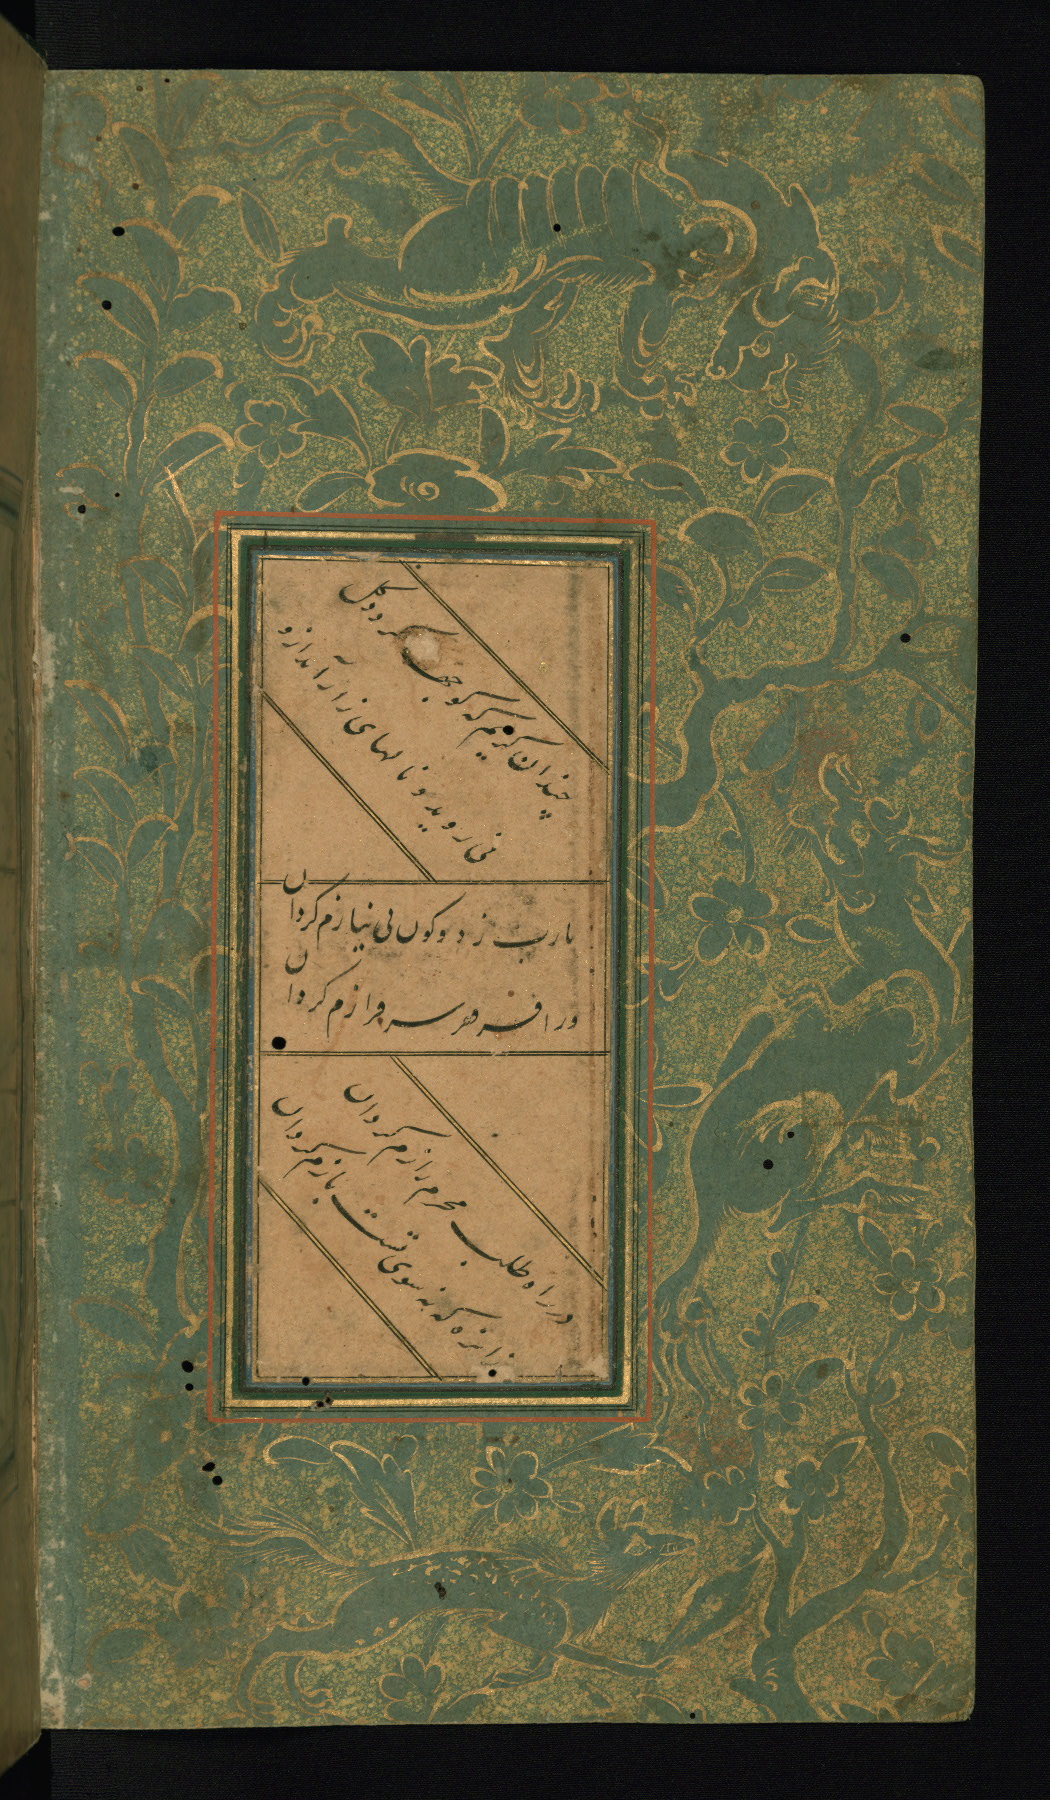 چندان گریم که کوچه‌ها گل گردد
نی روید و ناله‌های زار اندازد
یارب ز دو کون بی نیازم گردان
وز افسر فقر سرفرازم گردان
در راه طلب محرم رازم گردان
زان ره که نه سوی تست بازم گردان